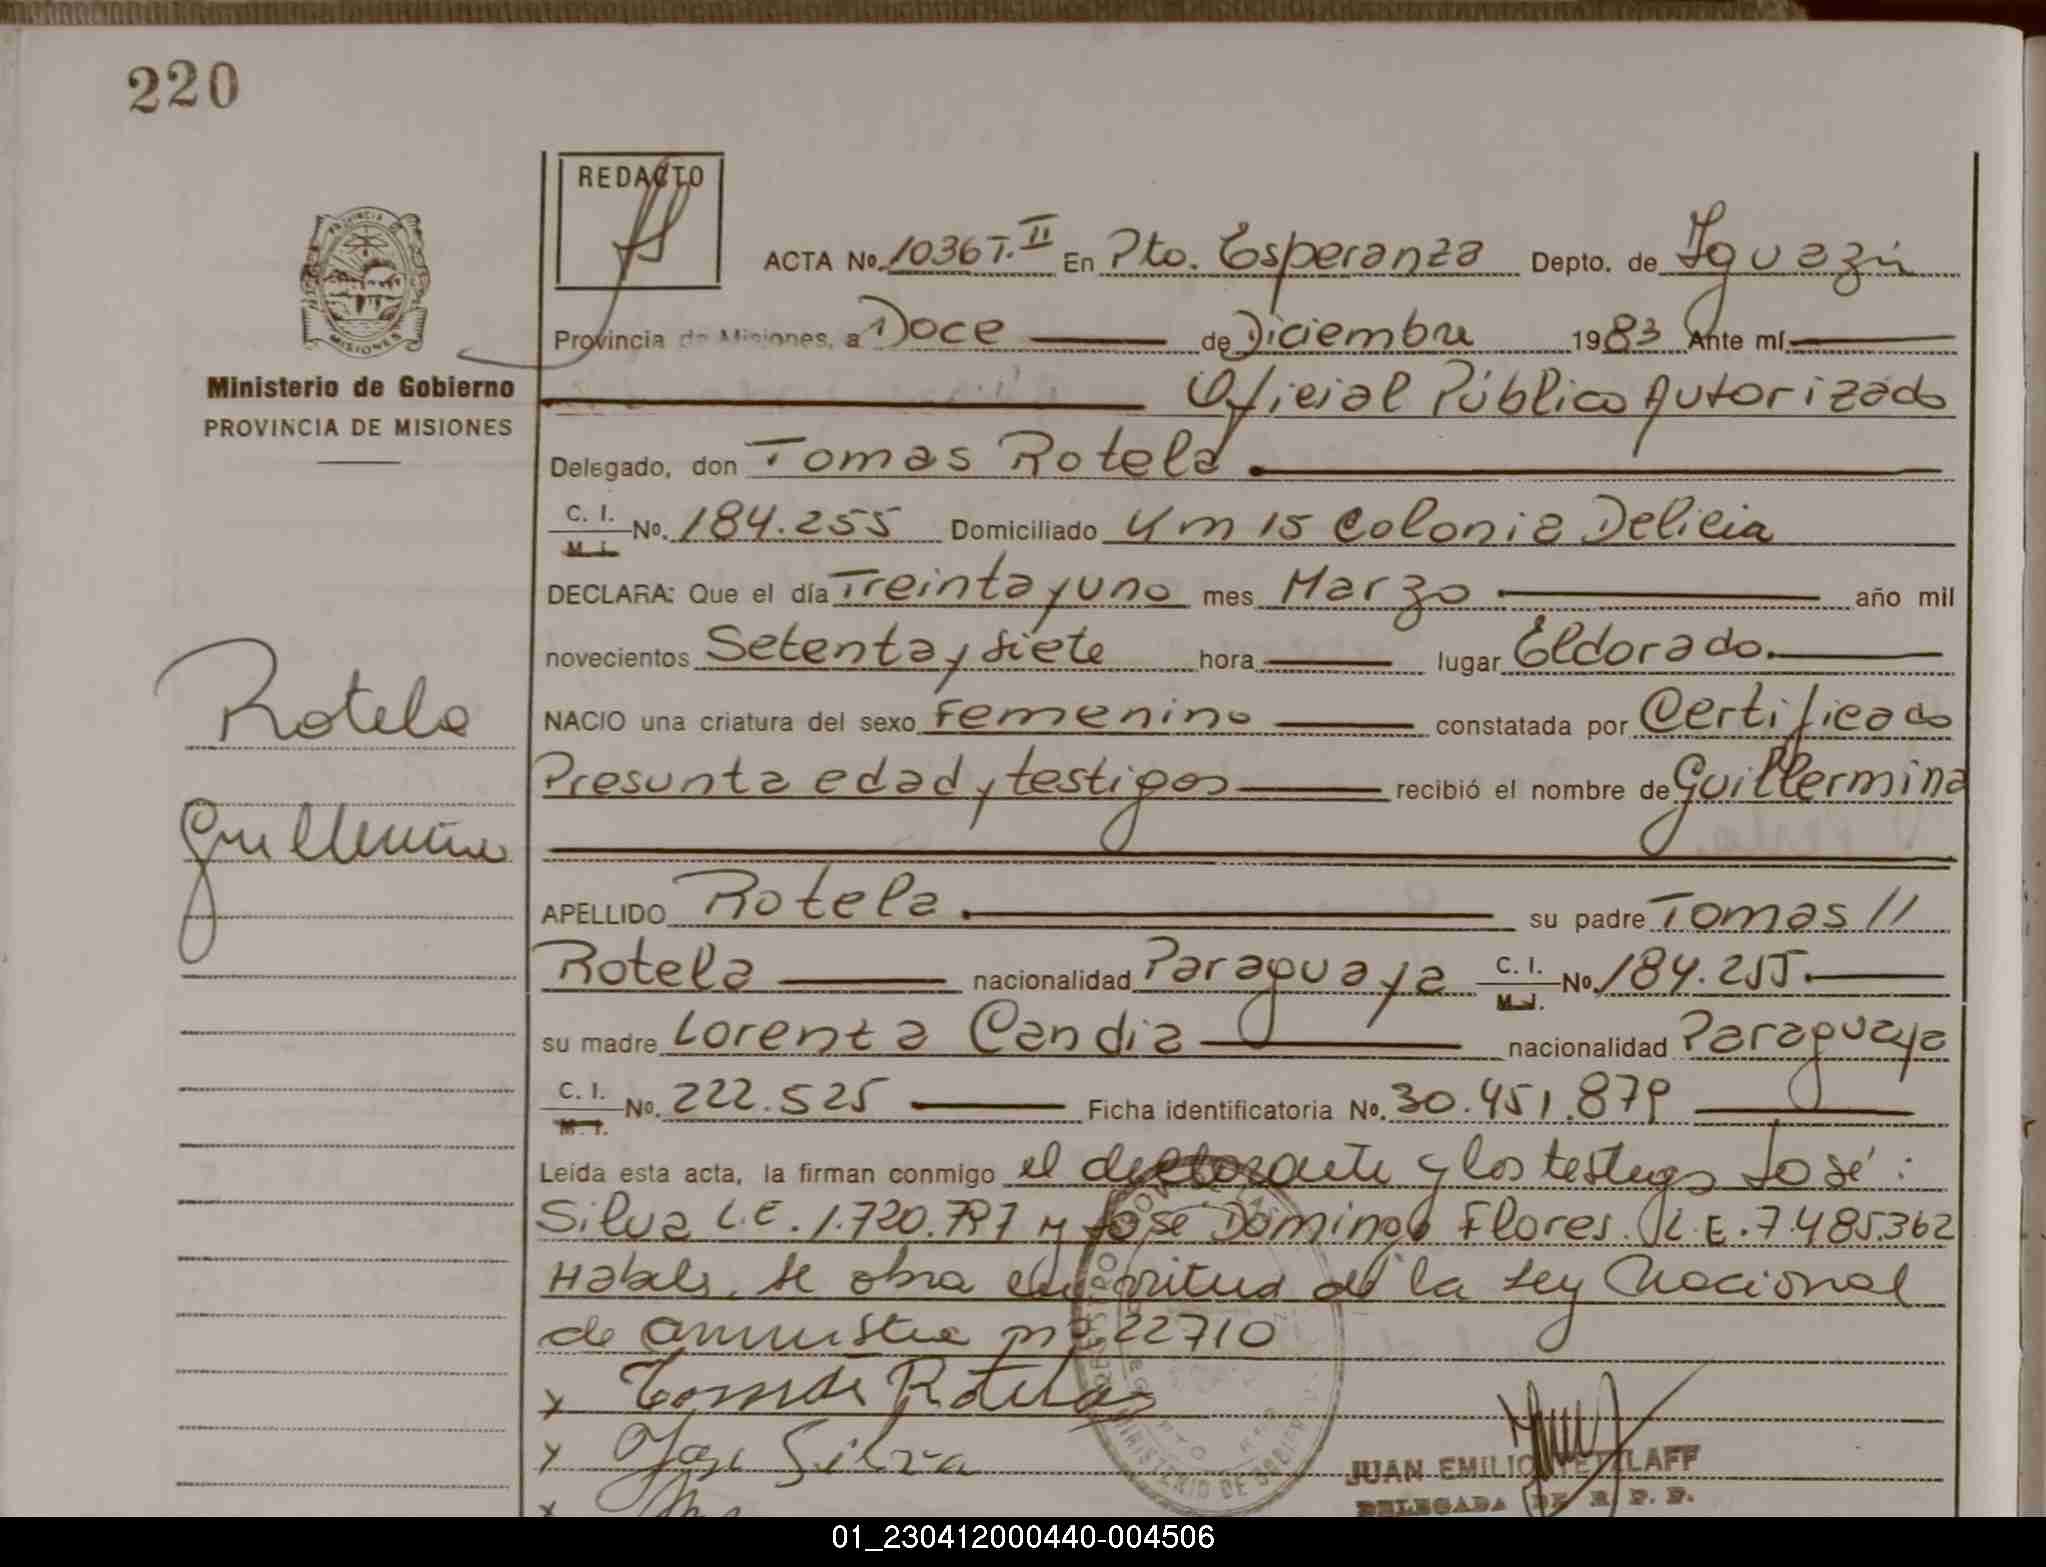 220
REDACTO
ACTA No. 1036 T. II En Pto. Esperanza Depto. de Iguazú
Provincia de Misiones, a Doce de Diciembre 1983 Ante mí
Ministerio de Gobierno
PROVINCIA DE MISIONES
MISIONES
Oficial Público Autorizado
Delegado, don Tomas Rotela
C. I. M. I. No. 184.255 Domiciliado Km 15 Colonia Delicia
DECLARA: Que el día Treinta y uno mes Marzo año mil
novecientos Setenta y siete hora lugar Eldorado.
Rotela
NACIO una criatura del sexo Femenino constatada por Certificado
Presunta edad y testigos recibió el nombre de Guillermina
Guillermina
APELLIDO Rotela su padre Tomas //
Rotela nacionalidad Paraguaya C. I. M. I. No. 184.255.
su madre Lorenza Candia nacionalidad Paraguaya
C. I. M. I. No. 222.525 Ficha identificatoria No. 30.451.879
Leída esta acta, la firman conmigo el declarante y los testigos José :
Silva L.E. 1.720.797 y José Domingo Flores. L.E. 7.485.362
Habels. Se obra en virtud de la Ley Nacional
de amnistia nº 22710
x Tomás Rotela
x Jose Silva
MINISTERIO DE GOBIERNO
JUAN EMILIO
DELEGADA DE R. P. P.
01_230412000440-004506